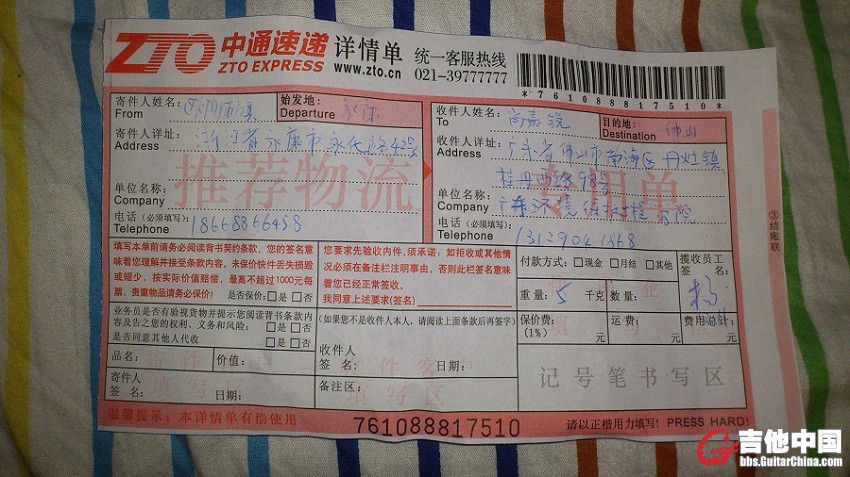 ZTO 中通速递 详情单 统一客服热线
ZTO EXPRESS www.zto.cn 021-39777777
*761088817510*
寄件人姓名: 始发地: 永康
From Departure
收件人姓名: 高嘉锐 目的地: 佛山
To Destination
寄件人详址: 浙江省永康市
Address
收件人详址: 广东省佛山市南海区丹灶镇
Address 桂丹西路98号
推荐物流
单位名称:
Company
单位名称: 广东环境保护工程学院
Company
电话(必须填写): 18668866458
Telephone
电话(必须填写): 13129041868
Telephone
填写本单前请务必阅读背书契约条款,您的签名意
味着您理解并接受条款内容,未保价快件丢失损毁
或短少,按实际价值赔偿,最高不超过1000元每
票,贵重物品请务必保价! 是否保价:□是 □否
您要求先验收内件,须承诺:如拒收或其他情
况必须在备注栏注明事由,否则此栏签名意味
着您已经正常签收。
我同意上述要求(签名)
付款方式:□现金 □月结 □其他
揽收员工
签名:
重量: 5 千克 数量:
业务员是否有验视货物并提示您阅读背书条款内
容及告之您的权利、义务和风险: □是 □否
是否同意其他人代收 □是 □否
(如果您不是收件人本人,请阅读上面条款后再签字)
收件人
签 名: 日期:
保价费: 元
(1%)
运 费: 元
费用总计: 元
品名: 价值:
寄件人
签 名: 日期:
备注区:
记号笔书写区
温馨提示:本详情单有偿使用
761088817510
请以正楷用力填写! PRESS HARD!
③结账联
吉他中国
bbs.GuitarChina.com